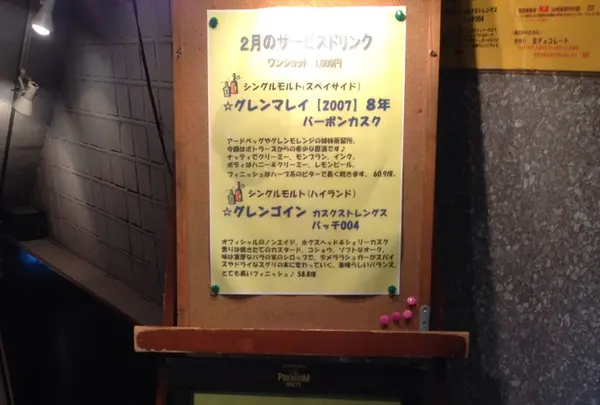 2月のサービスドリンク
ワンショット 1,000円
シングルモルト(スペイサイド)
☆グレンマレイ【2007】8年
バーボンカスク
アードベッグやグレンモレンジの姉妹蒸留所。
今回はボトラーズからの希少な原酒です♪
ナッティでクリーミー、モンブラン、インク。
ボディはハニー&クリーミー、レモンピール。
フィニッシュはハーブ系のビターで長く続きます。 60.9度。
シングルモルト(ハイランド)
☆グレンゴイン カスクストレングス
バッチ004
オフィシャルのノンエイジ、ホグスヘッド&シェリーカスク
香りは焼きたてのカスタード、コショウ、ソフトなオーク。
味は重厚なバラの実のシロップで、デメララシュガーがスパイ
スやドライなスグリの実に変わっていく、素晴らしいバランス。
とても長いフィニッシュ♪ 58.8度
カスクストレングス
004
生チョコレート
The PREMIUM
MALT'S